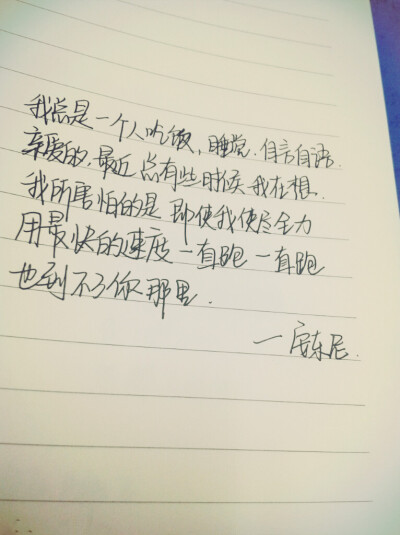 我总是一个人吃饭,睡觉.自言自语.
亲爱的,最近总有些时候我在想..
我所害怕的是 即使我使尽全力
用最快的速度 一直跑 一直跑
也到不了你那里.
—房东尼.